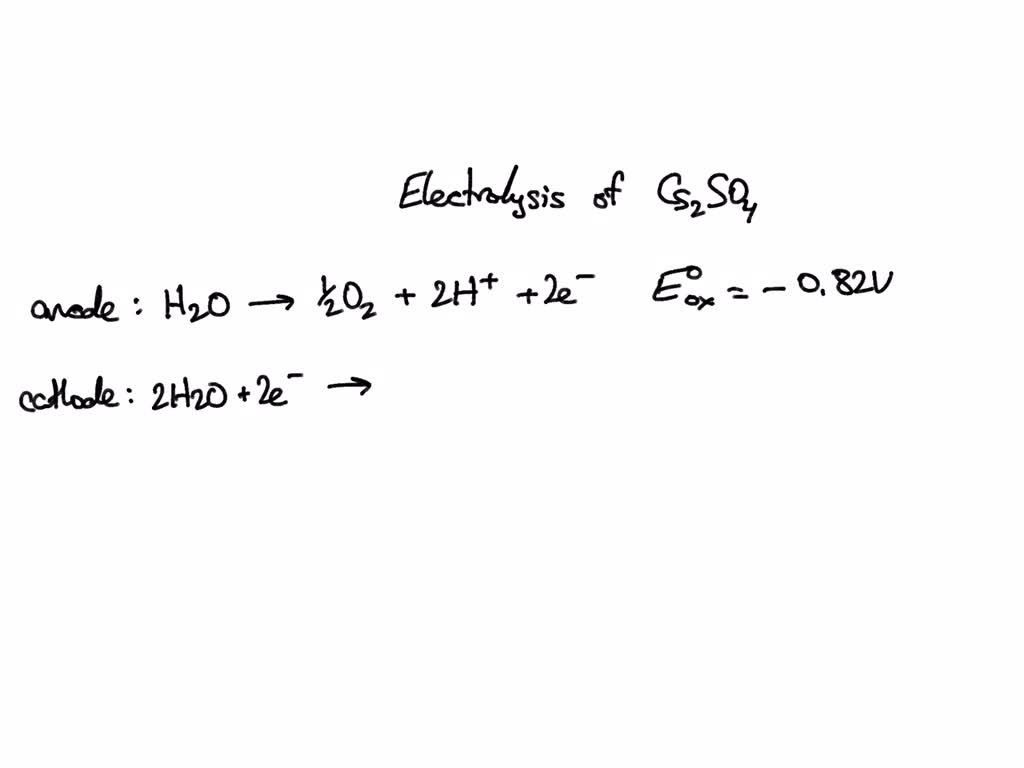 Electrolysis of Cs₂SO₄
anode: H₂O → ½O₂ + 2H⁺ + 2e⁻ E°ox = -0.82V
cathode: 2H2O + 2e⁻ →